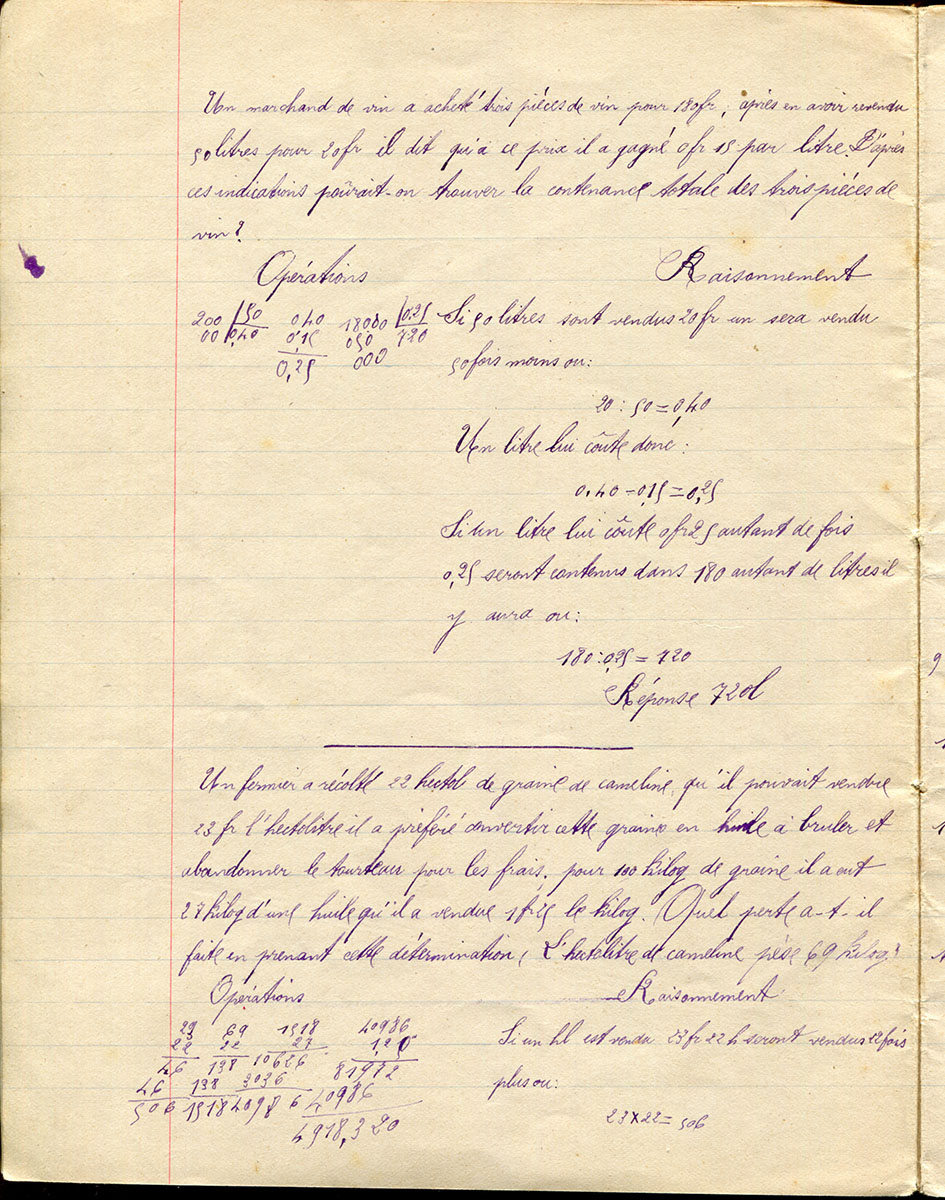 Un marchand de vin a acheté trois pièces de vin pour 180fr, après en avoir revendu
50 litres pour 20fr il dit qu'à ce prix il a gagné 0fr 15 par litre. D'après
ces indications poûrait-on trouver la contenance totale des trois pièces de
vin?
Opérations Raisonnement
200 |50 0,40 18000 |0,25 Si 50 litres sont vendus 20fr un sera vendu
00 0,40 0,15 050 720
0,25 000 50 fois moins ou:
20 : 50 = 0,40
Un litre lui coûte donc:
0,40 - 0,15 = 0,25
Si un litre lui coûte 0fr25 autant de fois
0,25 seront contenus dans 180 autant de litres il
y aura ou:
180 : 0,25 = 720
Réponse 720l
Un fermier a récolté 22 hectol de graine de cameline, qu'il pouvait vendre
23 fr l'hectolitre il a préféré convertir cette graine en huile à bruler et
abandonner le tourteau pour les frais. pour 100 kilog de graine il a eut
27 kilog d'une huile qu'il a vendue 1fr25 le kilog. Quel perte a-t-il
faite en prenant cette détermination, L'hectolitre de cameline pèse 69 kilog?
Opérations Raisonnement
23 69 1518 40986 Si un hl est vendu 23 fr 22 h seront vendus 22 fois
22 22 27
46 138 10626 81972 plus ou:
46 138 3036 40986
506 1518 40986 23 x 22 = 506
4918,320